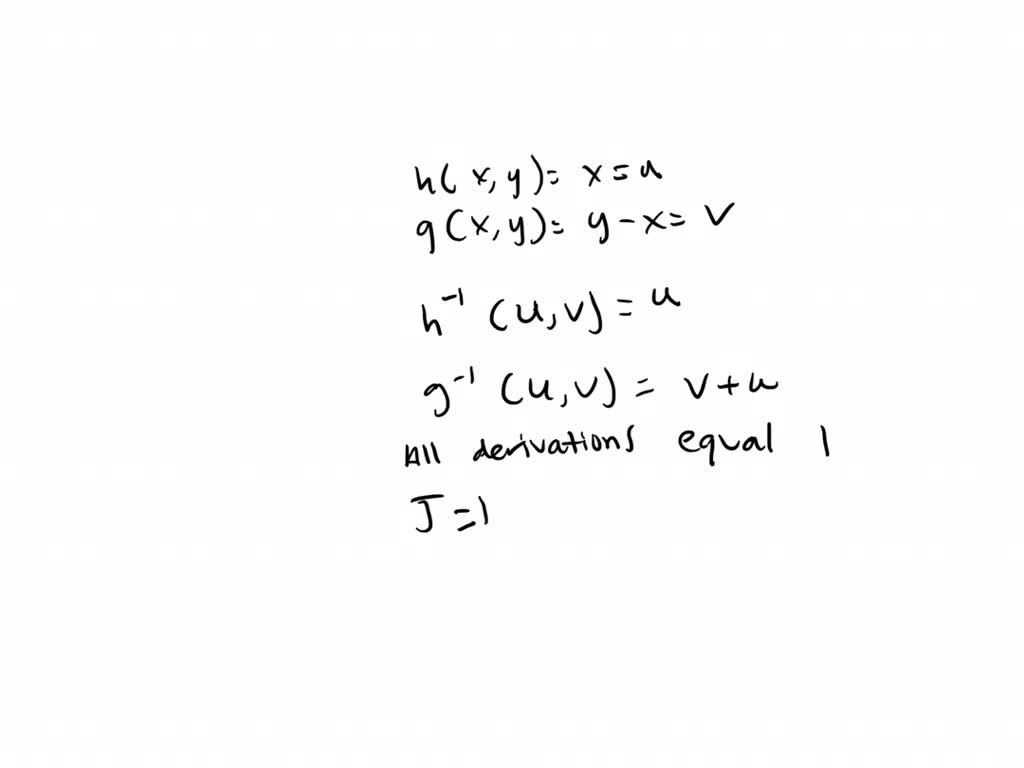 h(x,y)= x=u
g(x,y)= y-x= v
h⁻¹ (u,v) = u
g⁻¹ (u,v) = v+u
All derivations equal 1
J=1